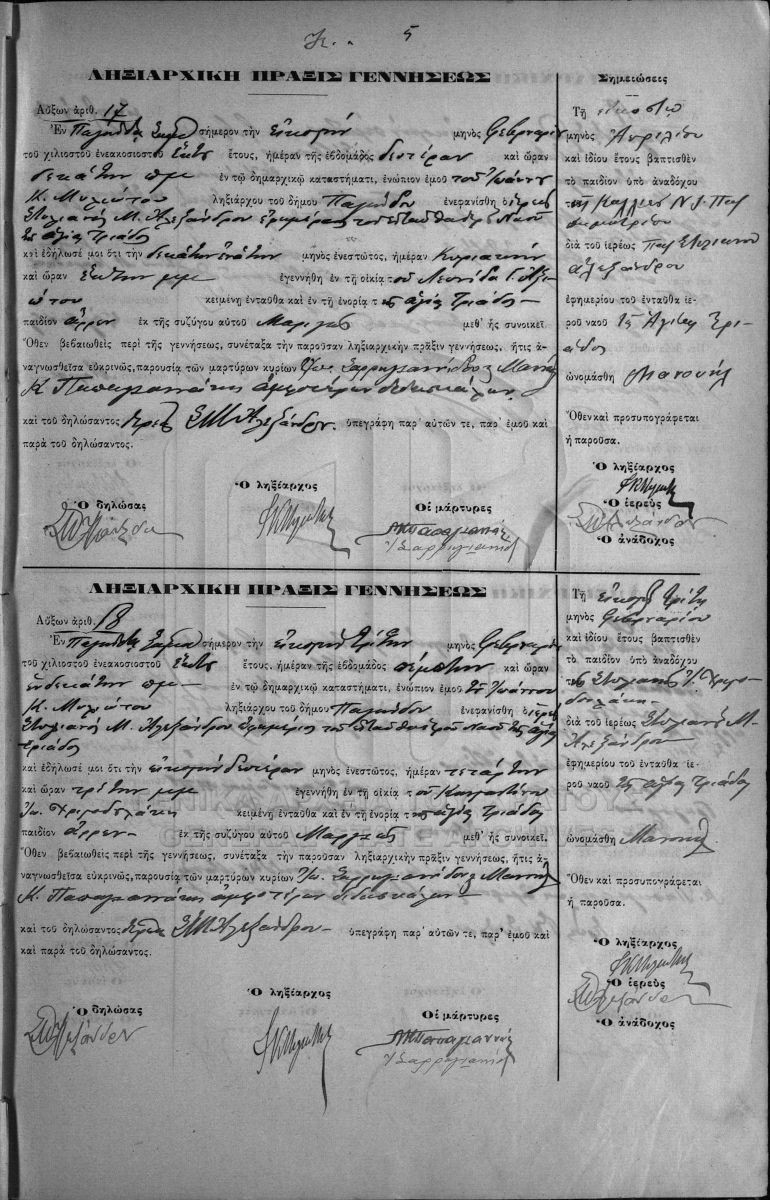 5
ΛΗΞΙΑΡΧΙΚΗ ΠΡΑΞΙΣ ΓΕΝΝΗΣΕΩΣ
Αὔξων ἀριθ. 17
Ἐν σήμερον τὴν εἰκοστήν μηνὸς Φεβρουαρίου
τοῦ χιλιοστοῦ ἐνεακοσιοστοῦ ἕκτου ἔτους, ἡμέραν τῆς ἑβδομάδος δευτέραν καὶ ὥραν
δεκάτην πμ ἐν τῷ δημαρχικῷ καταστήματι, ἐνώπιον ἐμοῦ τοῦ Ἰωάννου
Κ. Μυλώτου ληξιάρχου τοῦ δήμου ἐνεφανίσθη ὁ ἱερεύς
Στυλιανός Μ. Ἀλεξάνδρου ἐφημέριος τοῦ ἐνταῦθα Ναοῦ
τῆς ἁγίας Τριάδος
καὶ ἐδήλωσέ μοι ὅτι τὴν δεκάτην ἐνάτην μηνὸς ἐνεστῶτος, ἡμέραν Κυριακήν
καὶ ὥραν ἕκτην μμ ἐγεννήθη ἐν τῇ οἰκίᾳ τοῦ Λεονίδα
κειμένῃ ἐνταῦθα καὶ ἐν τῇ ἐνορίᾳ τῆς ἁγίας Τριάδος
παιδίον ἄρρεν ἐκ τῆς συζύγου αὐτοῦ Μαριγῶς μεθ' ἧς συνοικεῖ.
Ὅθεν βεβαιωθεὶς περὶ τῆς γεννήσεως, συνέταξα τὴν παροῦσαν ληξιαρχικὴν πρᾶξιν γεννήσεως, ἥτις ἀ-
ναγνωσθεῖσα εὐκρινῶς, παρουσίᾳ τῶν μαρτύρων κυρίων Ἰω. Σαρρηγιαννίδου & Μανουήλ
Κ. Παπαγιαννάκη ἀμφοτέρων διδασκάλων
καὶ τοῦ δηλώσαντος ἱερέως Σ Μ Ἀλεξάνδρου ὑπεγράφη παρ' αὐτῶν τε, παρ' ἐμοῦ καὶ
παρὰ τοῦ δηλώσαντος.
Ὁ δηλώσας
Ὁ ληξίαρχος
Οἱ μάρτυρες
ΜΚΠαπαγιαννάκης
Σημειώσεις
Τῇ εἰκοστῇ
μηνὸς Ἀπριλίου
καὶ ἰδίου ἔτους βαπτισθὲν
τὸ παιδίον ὑπὸ ἀναδόχου
διὰ τοῦ ἱερέως Στυλιανοῦ
Ἀλεξάνδρου
ἐφημερίου τοῦ ἐνταῦθα ἱε-
ροῦ ναοῦ τῆς Ἁγίας Τρι-
άδος
ὠνομάσθη Μανουήλ
Ὅθεν καὶ προσυπογράφεται
ἡ παροῦσα.
Ὁ ληξίαρχος
Ὁ ἱερεὺς
Ὁ ἀνάδοχος
ΛΗΞΙΑΡΧΙΚΗ ΠΡΑΞΙΣ ΓΕΝΝΗΣΕΩΣ
Αὔξων ἀριθ. 18
Ἐν σήμερον τὴν εἰκοστήν τρίτην μηνὸς Φεβρουαρίου
τοῦ χιλιοστοῦ ἐνεακοσιοστοῦ ἕκτου ἔτους, ἡμέραν τῆς ἑβδομάδος πέμπτην καὶ ὥραν
ἑνδεκάτην πμ ἐν τῷ δημαρχικῷ καταστήματι, ἐνώπιον ἐμοῦ τοῦ Ἰωάννου
Κ. Μυλώτου ληξιάρχου τοῦ δήμου ἐνεφανίσθη ὁ ἱερεύς
Στυλιανός Μ. Ἀλεξάνδρου ἐφημέριος τοῦ ἐνταῦθα ἱεροῦ Ναοῦ τῆς ἁγίας
Τριάδος
καὶ ἐδήλωσέ μοι ὅτι τὴν εἰκοστήν δευτέραν μηνὸς ἐνεστῶτος, ἡμέραν τετάρτην
καὶ ὥραν τρίτην μμ ἐγεννήθη ἐν τῇ οἰκίᾳ τοῦ Κωνσταντίνου
Ἰω. κειμένῃ ἐνταῦθα καὶ ἐν τῇ ἐνορίᾳ τῆς ἁγίας Τριάδος
παιδίον ἄρρεν ἐκ τῆς συζύγου αὐτοῦ Μαριγῶς μεθ' ἧς συνοικεῖ.
Ὅθεν βεβαιωθεὶς περὶ τῆς γεννήσεως, συνέταξα τὴν παροῦσαν ληξιαρχικὴν πρᾶξιν γεννήσεως, ἥτις ἀ-
ναγνωσθεῖσα εὐκρινῶς, παρουσίᾳ τῶν μαρτύρων κυρίων Ἰω. Σαρρηγιαννίδου & Μανουήλ
Κ. Παπαγιαννάκη ἀμφοτέρων διδασκάλων
καὶ τοῦ δηλώσαντος ἱερέως Σ Μ Ἀλεξάνδρου ὑπεγράφη παρ' αὐτῶν τε, παρ' ἐμοῦ καὶ
καὶ παρὰ τοῦ δηλώσαντος.
Ὁ δηλώσας
Ὁ ληξίαρχος
Οἱ μάρτυρες
ΜΚΠαπαγιαννάκης
Τῇ εἰκοστῇ τρίτῃ
μηνὸς Φεβρουαρίου
καὶ ἰδίου ἔτους βαπτισθὲν
τὸ παιδίον ὑπὸ ἀναδόχου
διὰ τοῦ ἱερέως Στυλιανοῦ Μ.
Ἀλεξάνδρου
ἐφημερίου τοῦ ἐνταῦθα ἱε-
ροῦ ναοῦ τῆς ἁγίας Τριάδος
ὠνομάσθη Μανουήλ
Ὅθεν καὶ προσυπογράφεται
ἡ παροῦσα.
Ὁ ληξίαρχος
Ὁ ἱερεὺς
Ὁ ἀνάδοχος